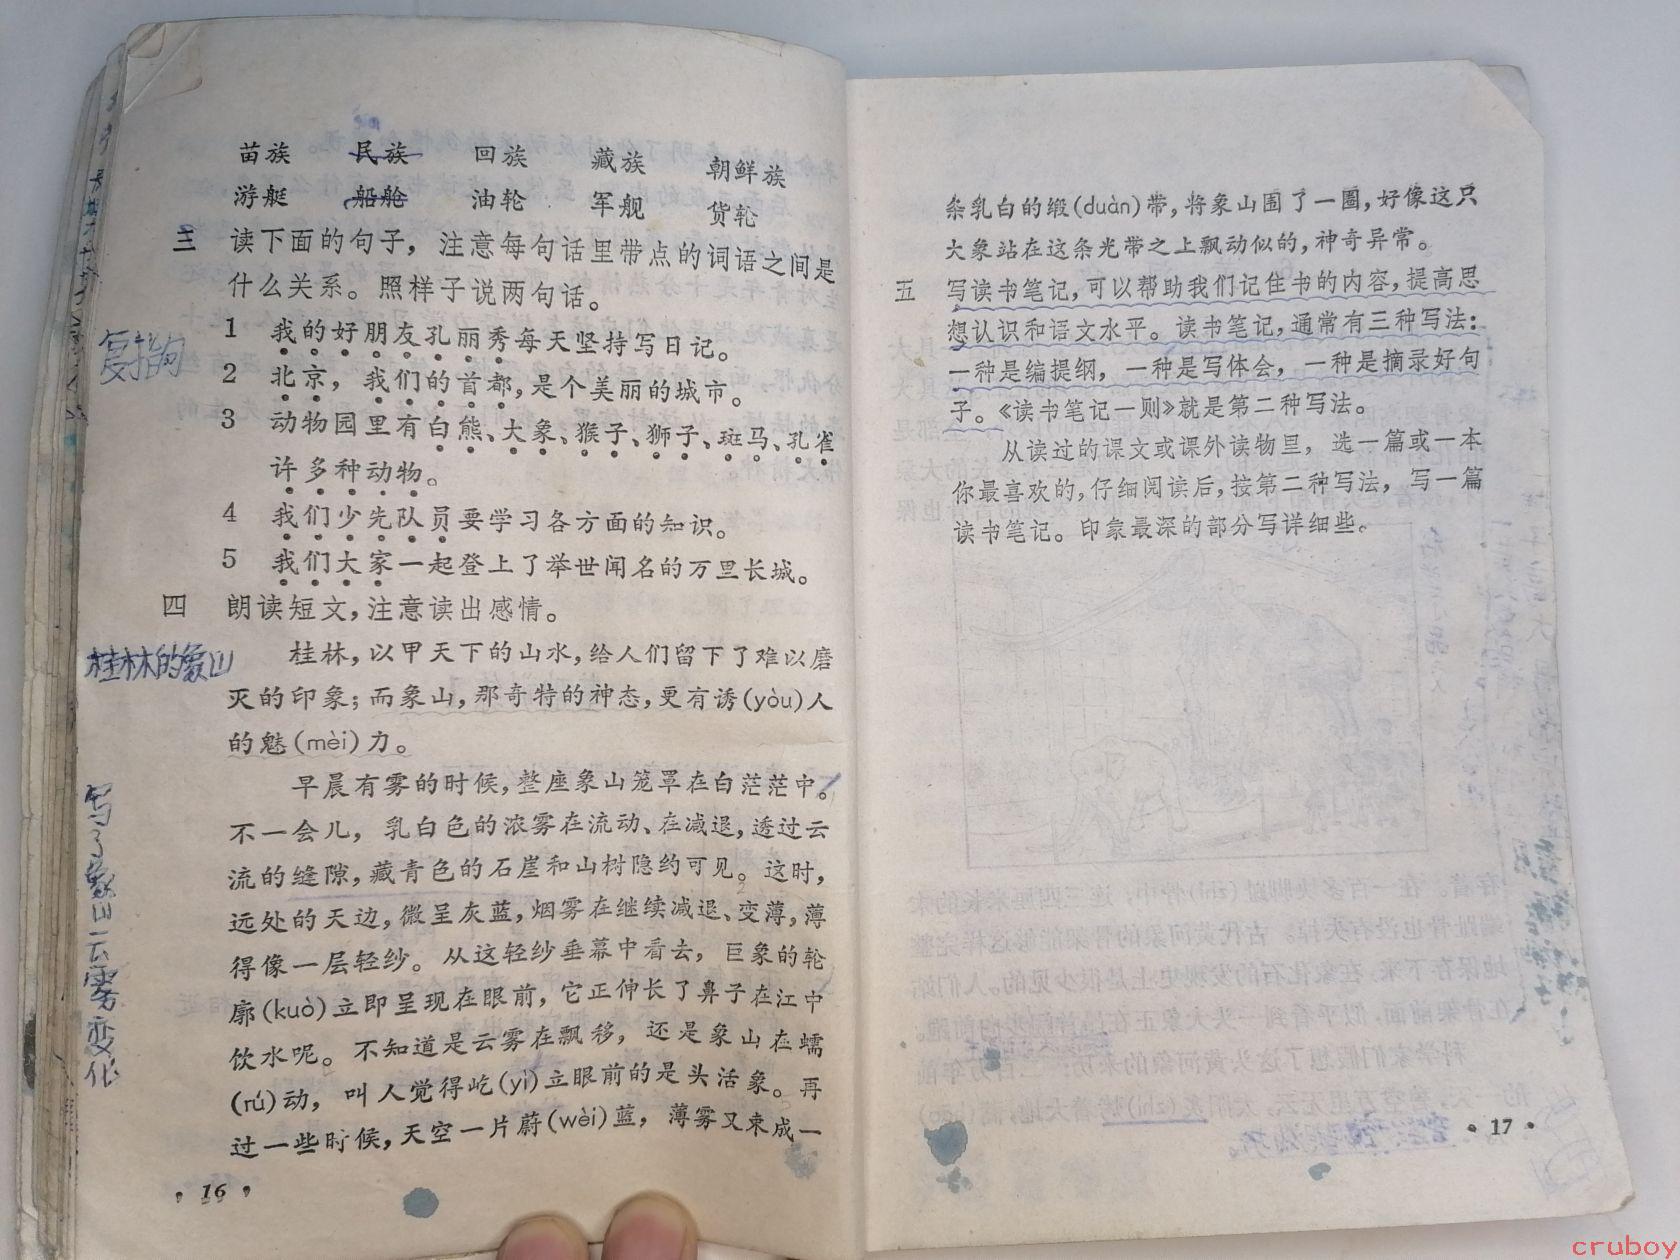 苗族 民族 回族 藏族 朝鲜族
游艇 船舱 油轮 军舰 货轮
三 读下面的句子，注意每句话里带点的词语之间是
什么关系。照样子说两句话。
复指句
1 我的好朋友孔丽秀每天坚持写日记。
2 北京，我们的首都，是个美丽的城市。
3 动物园里有白熊、大象、猴子、狮子、斑马、孔雀
许多种动物。
4 我们少先队员要学习各方面的知识。
5 我们大家一起登上了举世闻名的万里长城。
四 朗读短文，注意读出感情。
桂林的象山
桂林，以甲天下的山水，给人们留下了难以磨
灭的印象；而象山，那奇特的神态，更有诱(yòu)人
的魅(mèi)力。
写了象山云雾变化
早晨有雾的时候，整座象山笼罩在白茫茫中。
不一会儿，乳白色的浓雾在流动、在减退，透过云
流的缝隙，藏青色的石崖和山树隐约可见。这时，
远处的天边，微呈灰蓝，烟雾在继续减退、变薄，薄
得像一层轻纱。从这轻纱垂幕中看去，巨象的轮
廓(kuò)立即呈现在眼前，它正伸长了鼻子在江中
饮水呢。不知道是云雾在飘移，还是象山在蠕
(rú)动，叫人觉得屹(yì)立眼前的是头活象。再
过一些时候，天空一片蔚(wèi)蓝，薄雾又束成一
·16·
条乳白的缎(duàn)带，将象山围了一圈，好像这只
大象站在这条光带之上飘动似的，神奇异常。
五 写读书笔记，可以帮助我们记住书的内容，提高思
想认识和语文水平。读书笔记，通常有三种写法：
一种是编提纲，一种是写体会，一种是摘录好句
子。《读书笔记一则》就是第二种写法。
从读过的课文或课外读物里，选一篇或一本
你最喜欢的，仔细阅读后，按第二种写法，写一篇
读书笔记。印象最深的部分写详细些。
·17·
cruboy